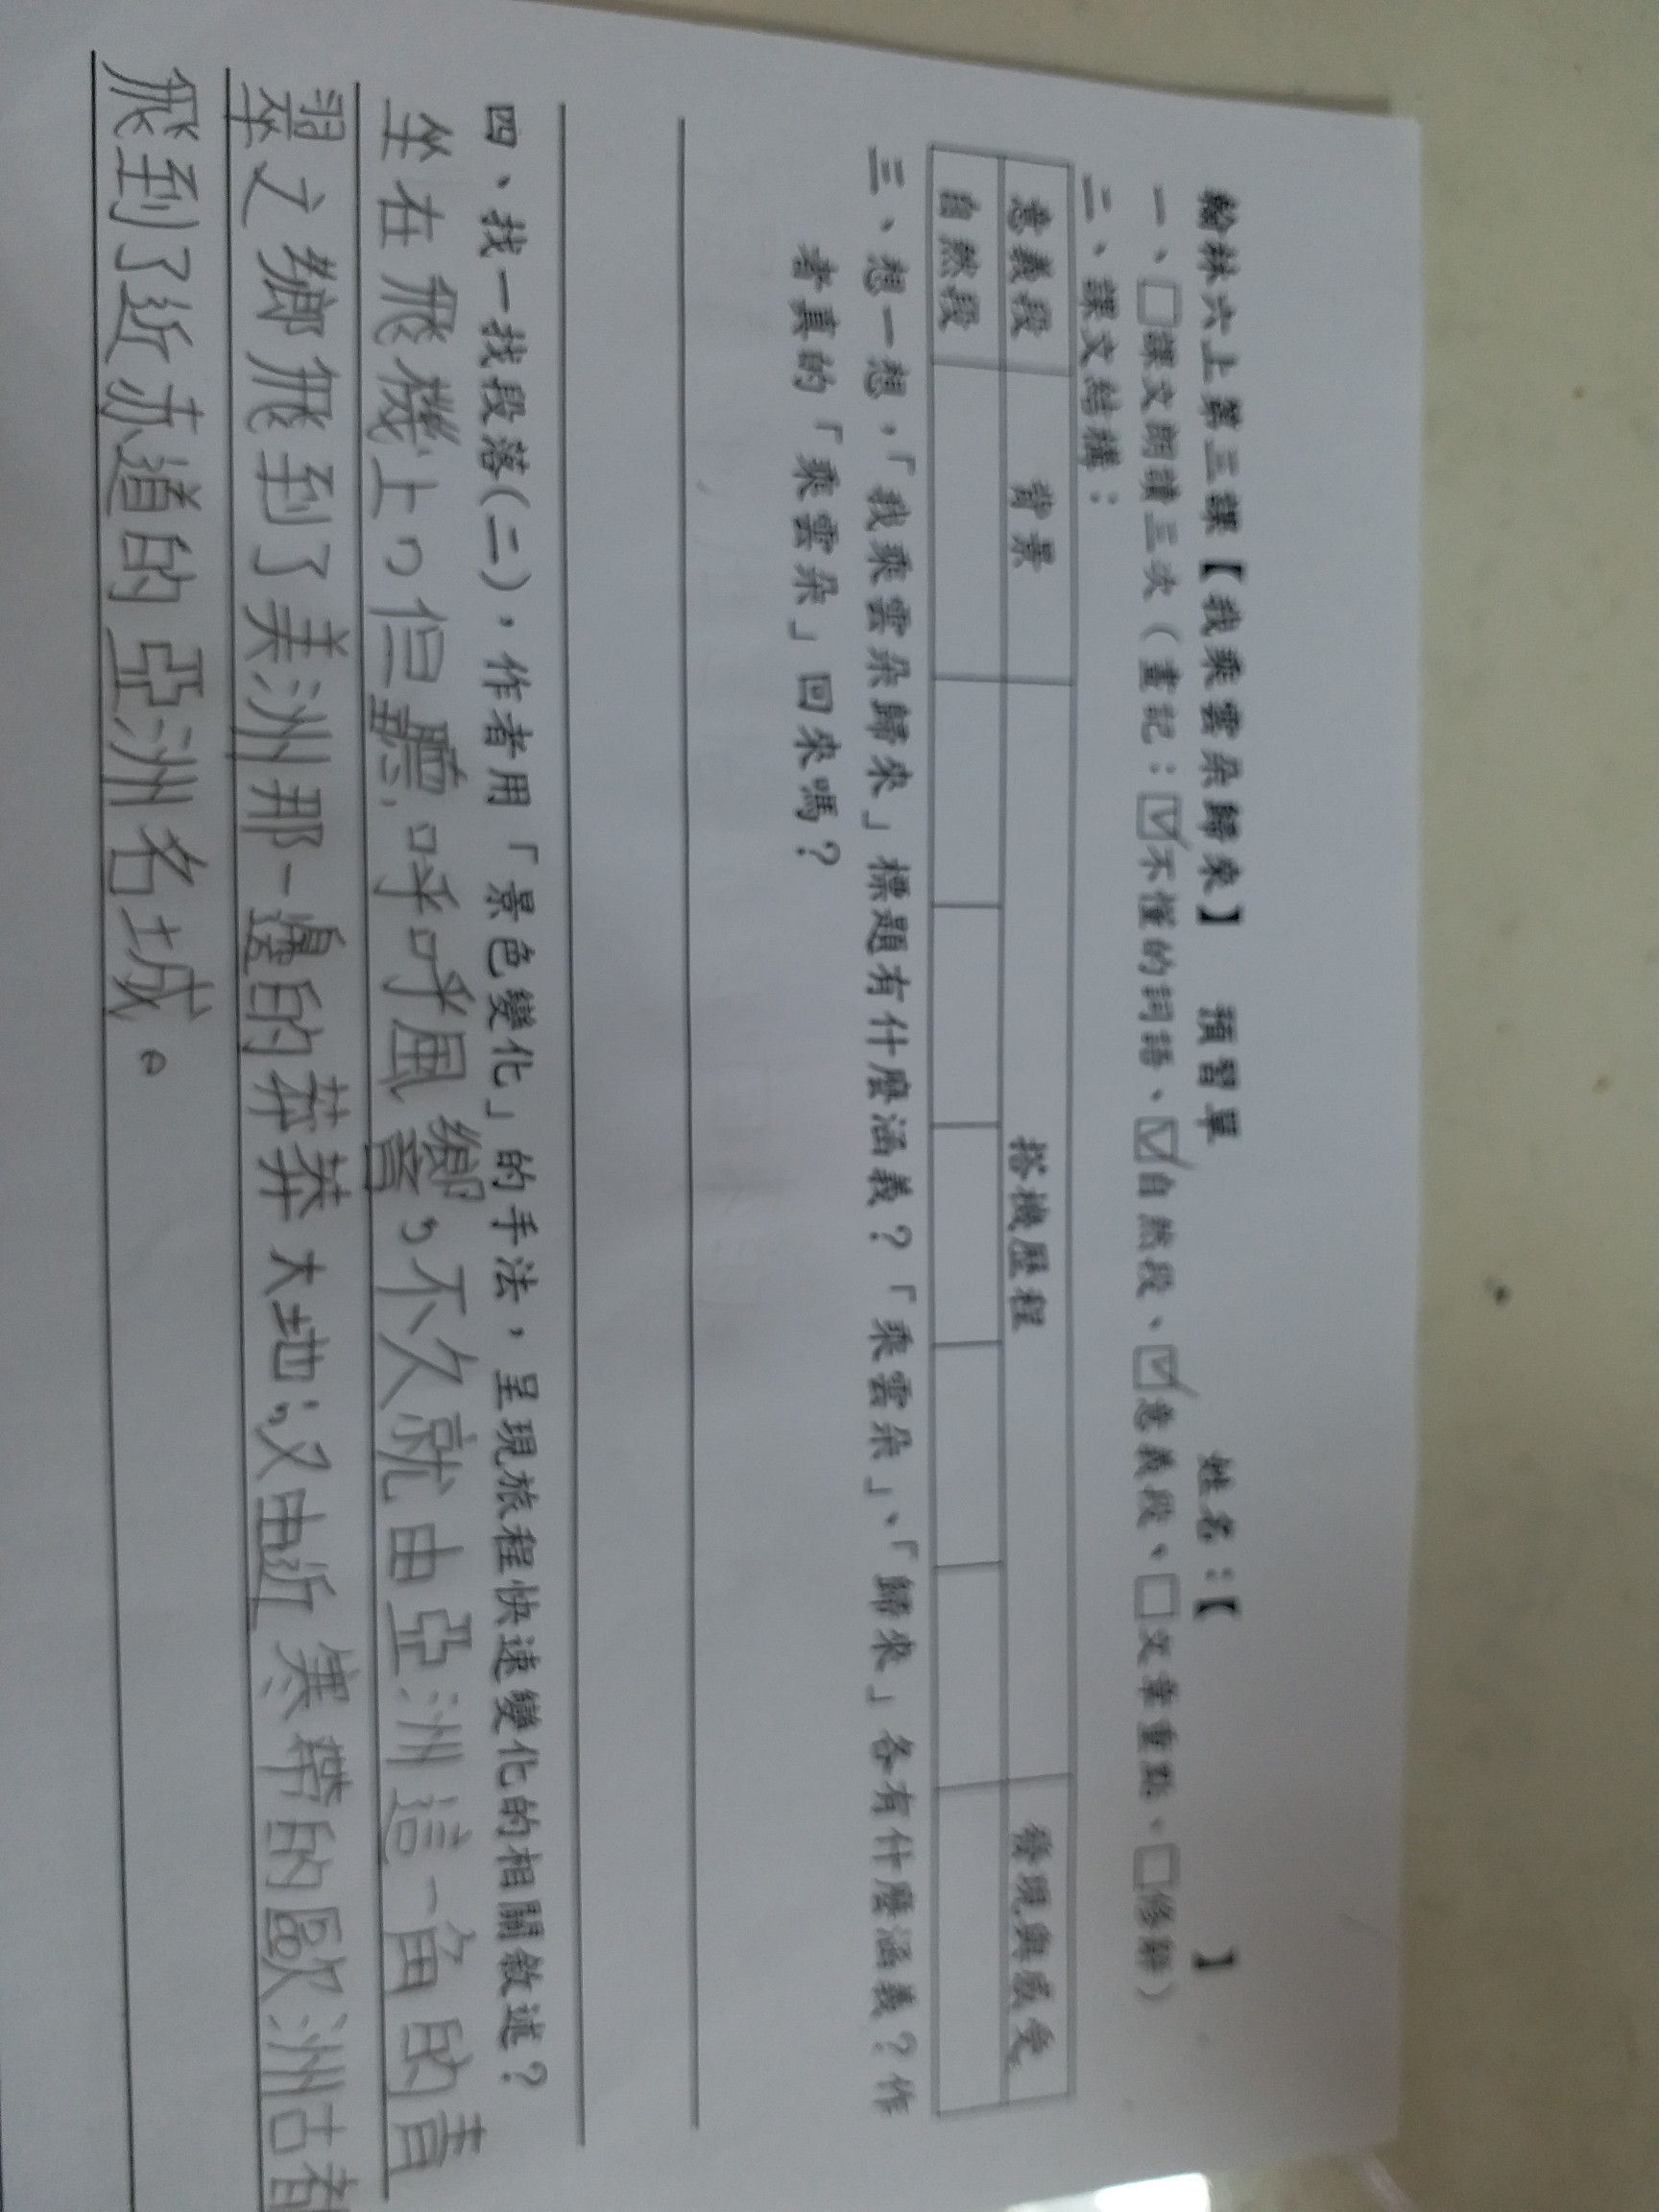 翰林六上第三課【我乘雲朵歸來】 預習單 姓名:【 】
一、□課文朗讀三次(畫記:☑不懂的詞語、☑自然段、☑意義段、□文章重點、□修辭)
二、課文結構:
意義段 背景 搭機歷程 發現與感受
自然段
三、想一想,「我乘雲朵歸來」標題有什麼涵義?「乘雲朵」、「歸來」各有什麼涵義?作
者真的「乘雲朵」回來嗎?
四、找一找段落(二),作者用「景色變化」的手法,呈現旅程快速變化的相關敘述?
坐在飛機上,但聽呼呼風響,不久就由亞洲這一角的青
翠之鄉飛到了美洲那一邊的莽莽大地;又由近寒帶的歐洲古都
飛到了近赤道的亞洲名城。